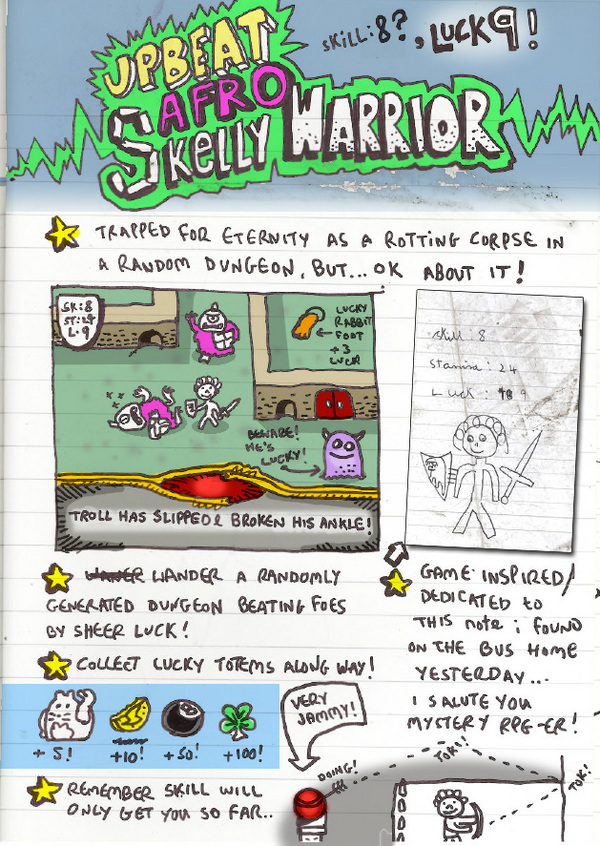 SKILL: 8?, LUCK 9!
UPBEAT
AFRO
SKELLY WARRIOR
TRAPPED FOR ETERNITY AS A ROTTING CORPSE IN
A RANDOM DUNGEON, BUT... OK ABOUT IT!
SK:8
ST:24
L:9
LUCKY
RABBIT
FOOT
+3
LUCK
BEWARE!
HE'S
LUCKY!
TROLL HAS SLIPPED & BROKEN HIS ANKLE!
Skill 8
Stamina: 24
Luck: 9
WANDER A RANDOMLY
GENERATED DUNGEON BEATING FOES
BY SHEER LUCK!
COLLECT LUCKY TOTEMS ALONG WAY!
+5! +10! +50! +100!
REMEMBER SKILL WILL
ONLY GET YOU SO FAR..
GAME INSPIRED/
DEDICATED TO
THIS NOTE I FOUND
ON THE BUS HOME
YESTERDAY...
I SALUTE YOU
MYSTERY RPG-ER!
VERY
JAMMY!
DOING!
TOK!
TOK!